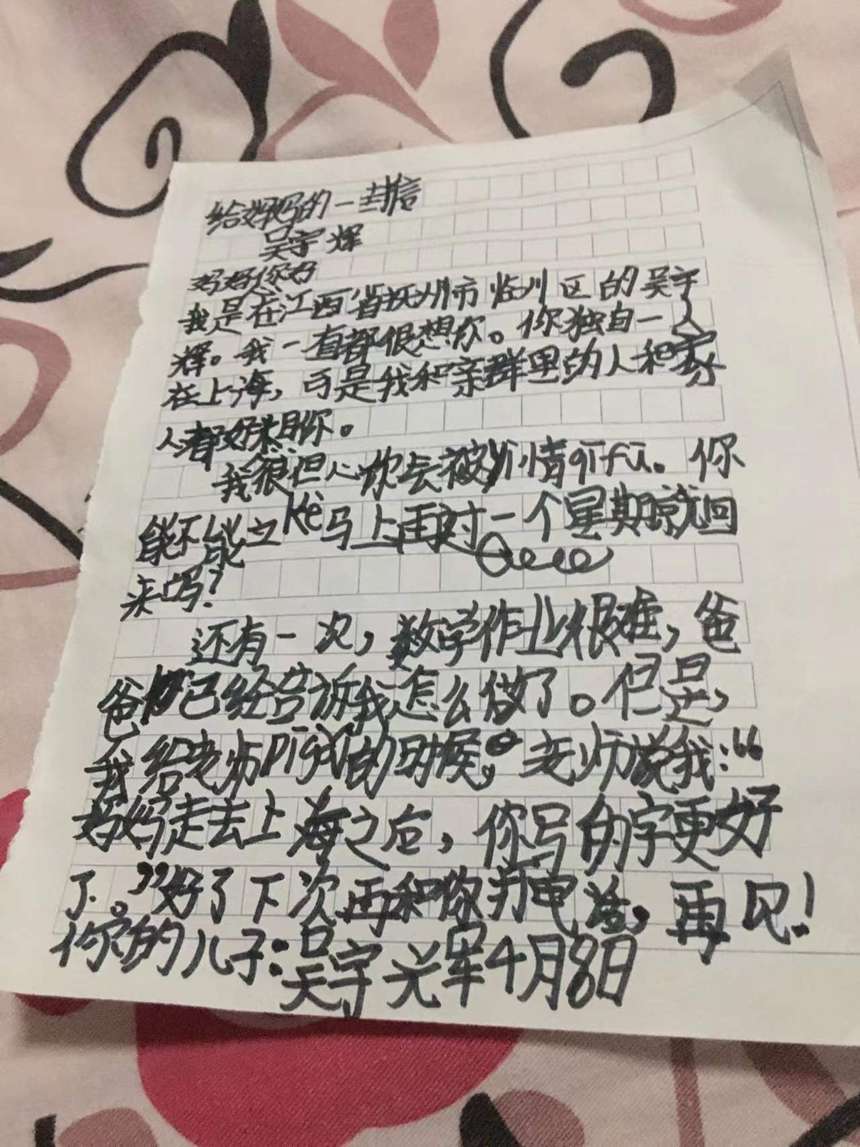 给妈妈的一封信
吴宇辉
妈妈你好
我是在江西省抚州市临川区的吴宇
辉。我一直都很想你。你独自一人
在上海,可是我和亲群里的人和家
人都好想你。
我很但心你会被疫情qīfu。你
能不能立kè马上再过一个星期就回
来吗?
还有一次,数学作业很难,爸
爸已经告诉我怎么做了。但是,
我给老师pīgǎi的时候,老师说我:“
妈妈走去上海之后,你写的字更好
了。”好了下次再和你打电话,再见!
你的儿子:吴宇辉4月8日